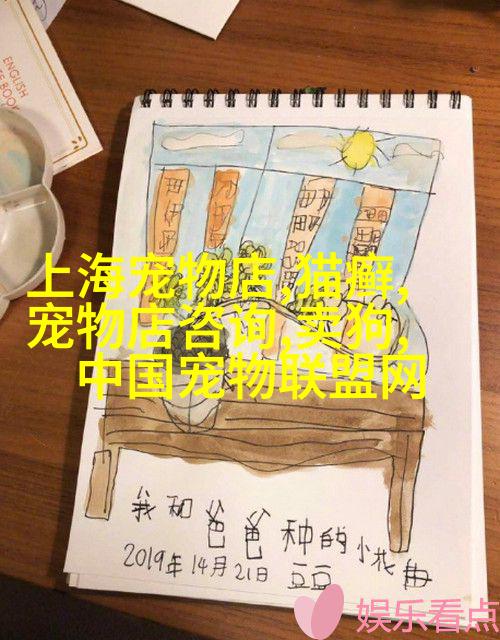 ENGLISH
上海宠物店,猫癣,
宠物店咨询,卖狗,
中国宠物联盟网
我和爸爸种的小
2019年14月21日 豆豆
娱乐看点